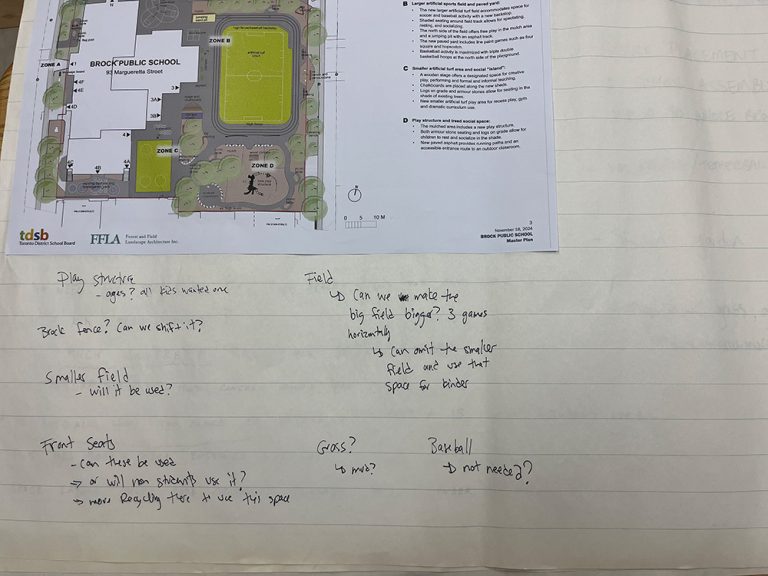 ZONE A
BROCK PUBLIC SCHOOL
93 Margueretta Street
ZONE B
ZONE C
ZONE D
3
3A
3B
4
4A
4B
4D
4E
4F
B Larger artificial sports field and paved yard:
• The new larger artificial turf field accommodates space for
soccer and baseball activity with a new backstop.
• Shaded seating around field track allows for spectating,
resting, and socializing.
• The north side of the field offers free play in the mulch area
and a jumping pit with an asphalt track.
• The new paved yard includes line paint games such as four
square and hopscotch.
• Basketball activity is maximized with triple double
basketball hoops at the north side of the playground.
C Smaller artificial turf area and social "island":
• A wooden stage offers a designated space for creative
play, performing and formal and informal teaching.
• Chalkboards are placed along the new shade.
• Logs on grade and armour stones allow for seating in the
shade of existing trees.
• New smaller artificial turf play area for recess play, gym
and dramatic curriculum use.
D Play structure and treed social space:
• The mulched area includes a new play structure.
• Both armour stone seating and logs on grade allow for
children to rest and socialize in the shade.
• New paved asphalt provides running paths and an
accessible entrance route to an outdoor classroom.
0 5 10 M
tdsb
Toronto District School Board
FFLA
Forest and Field
Landscape Architecture Inc.
3
November 18, 2024
BROCK PUBLIC SCHOOL
Master Plan
Play Structure
- ages? all kids wanted one
Brock fence? Can we shift it?
Smaller field
- will it be used?
Front Seats
- can these be used
→ or will non students use it?
→ more Recycling there to use this space
Field
↳ Can we make the
big field bigger? 3 games
horizontally
↳ Can omit the smaller
field and use that
space for
Grass?
↳ mud?
Baseball
↳ not needed?